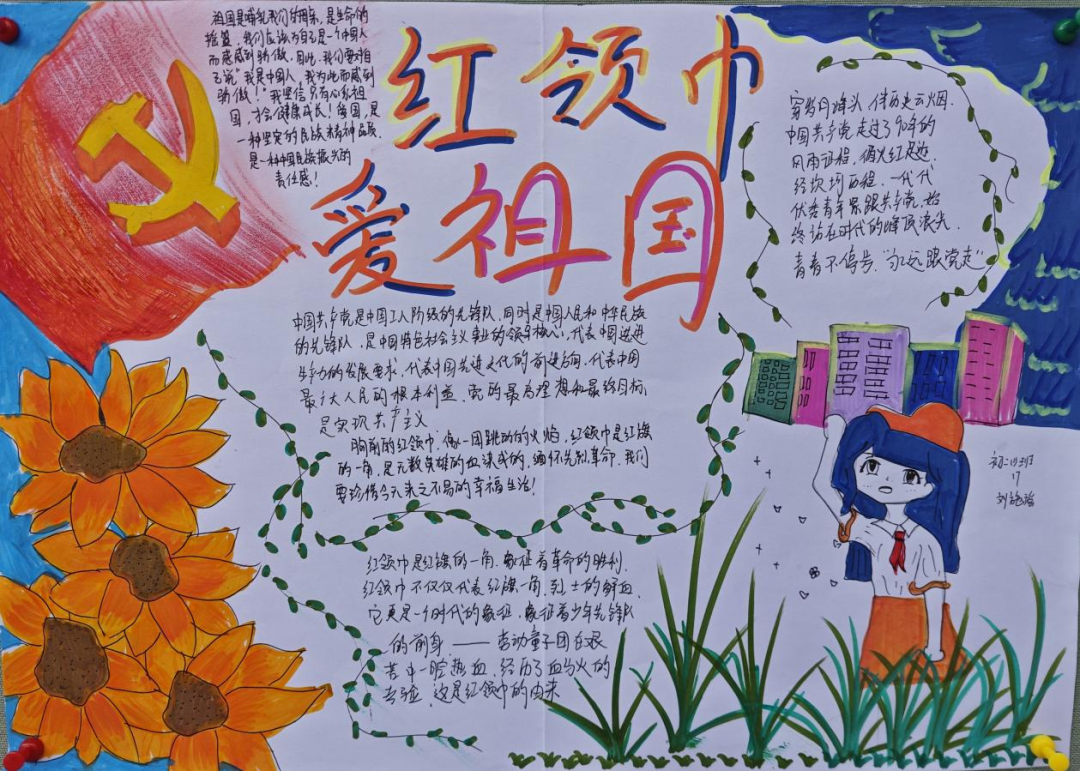 红领巾
爱祖国
祖国是哺乳我们的母亲，是生命的
摇篮，我们应该为自己是一个中国人
而感到骄傲。因此，我们要对自
己说"我是中国人，我为此而感到
骄傲！"我坚信只有心系祖
国，才会健康成长！爱国，是
一种坚实的民族精神品质
是一种中国民族振兴的
责任感！
穿岁月峰头，伴历史云烟，
中国共产党走过了90年的
风雨征程，循火红足迹，
经坎坷历程，一代代
优秀青年紧跟共产党，始
终站在时代的峰顶浪尖，
青春不停步，"永远跟党走"
中国共产党是中国工人阶级的先锋队，同时是中国人民和中华民族
的先锋队，是中国特色社会主义事业的领导核心，代表中国先进
生产力的发展要求，代表中国先进文化的前进方向，代表中国
最广大人民的根本利益，党的最高理想和最终目标
是实现共产主义
胸前的红领巾，像一团跳动的火焰，红领巾是红旗
的一角，是无数英雄的血染成的，缅怀先烈革命，我们
要珍惜今天来之不易的幸福生活！
红领巾是红旗的一角，象征着革命的胜利，
红领巾不仅仅代表红旗一角，烈士的鲜血，
它更是一个时代的象征，象征着少年先锋队
的前身——劳动童子团在艰
苦中一腔热血，经历了血与火的
考验，这是红领巾的由来
17